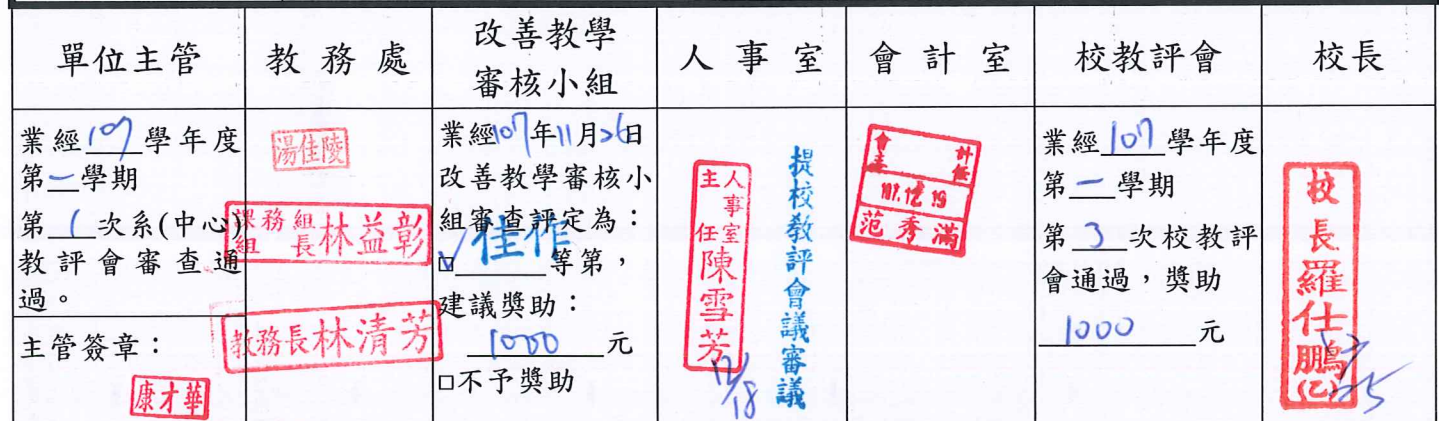 單位主管
教務處
改善教學
審核小組
人事室
會計室
校教評會
校長
業經107學年度
第一學期
第1次系(中心)
教評會審查通
過。
主管簽章：
康才華
湯佳陵
課務組
組長林益彰
教務長林清芳
業經107年11月26日
改善教學審核小
組審查評定為：
☑佳作等第，
建議獎助：
1000元
□不予獎助
人事室
主任陳雪芳
12/18
提校教評會議審議
會計
主任
107.12.19
范秀滿
業經107學年度
第一學期
第3次校教評
會通過，獎助
1000元
校長羅仕鵬(乙)